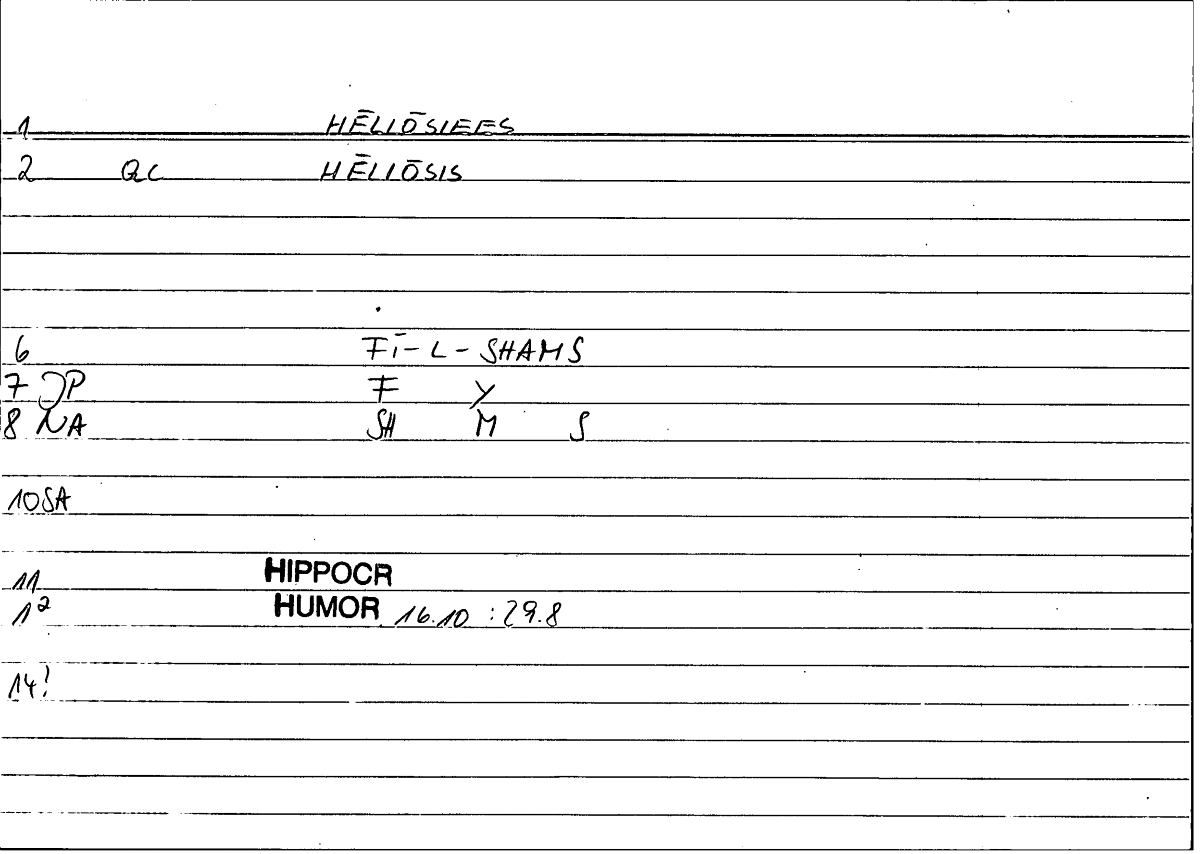 1 HĒLIŌSIEES
2 QC HĒLIŌSIS
6 FĪ-L-SHAMS
7 JP F Y
8 NA SH M S
10 SA
11 HIPPOCR
12 HUMOR 16.10 : 29.8
14!